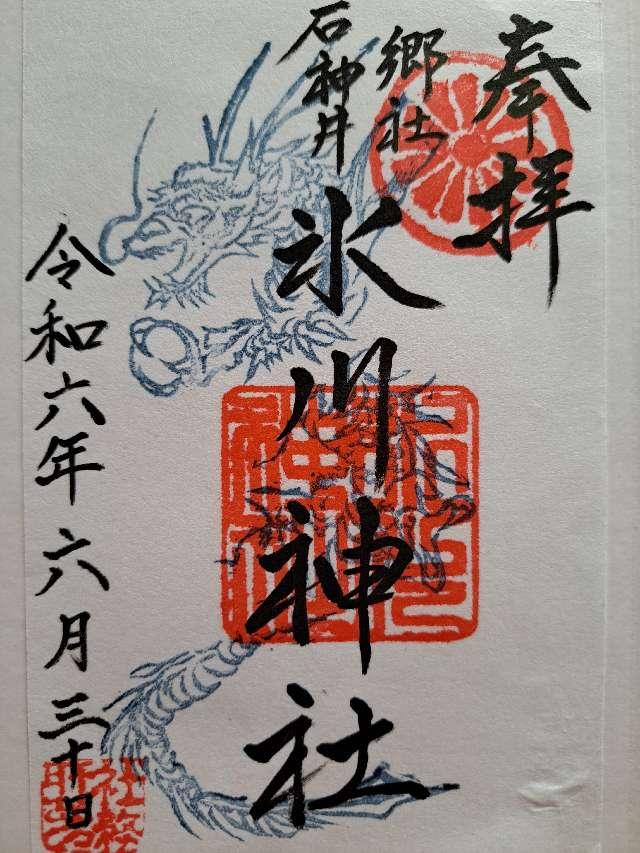 奉拝
郷社
石神井
氷川神社
令和六年六月三十日